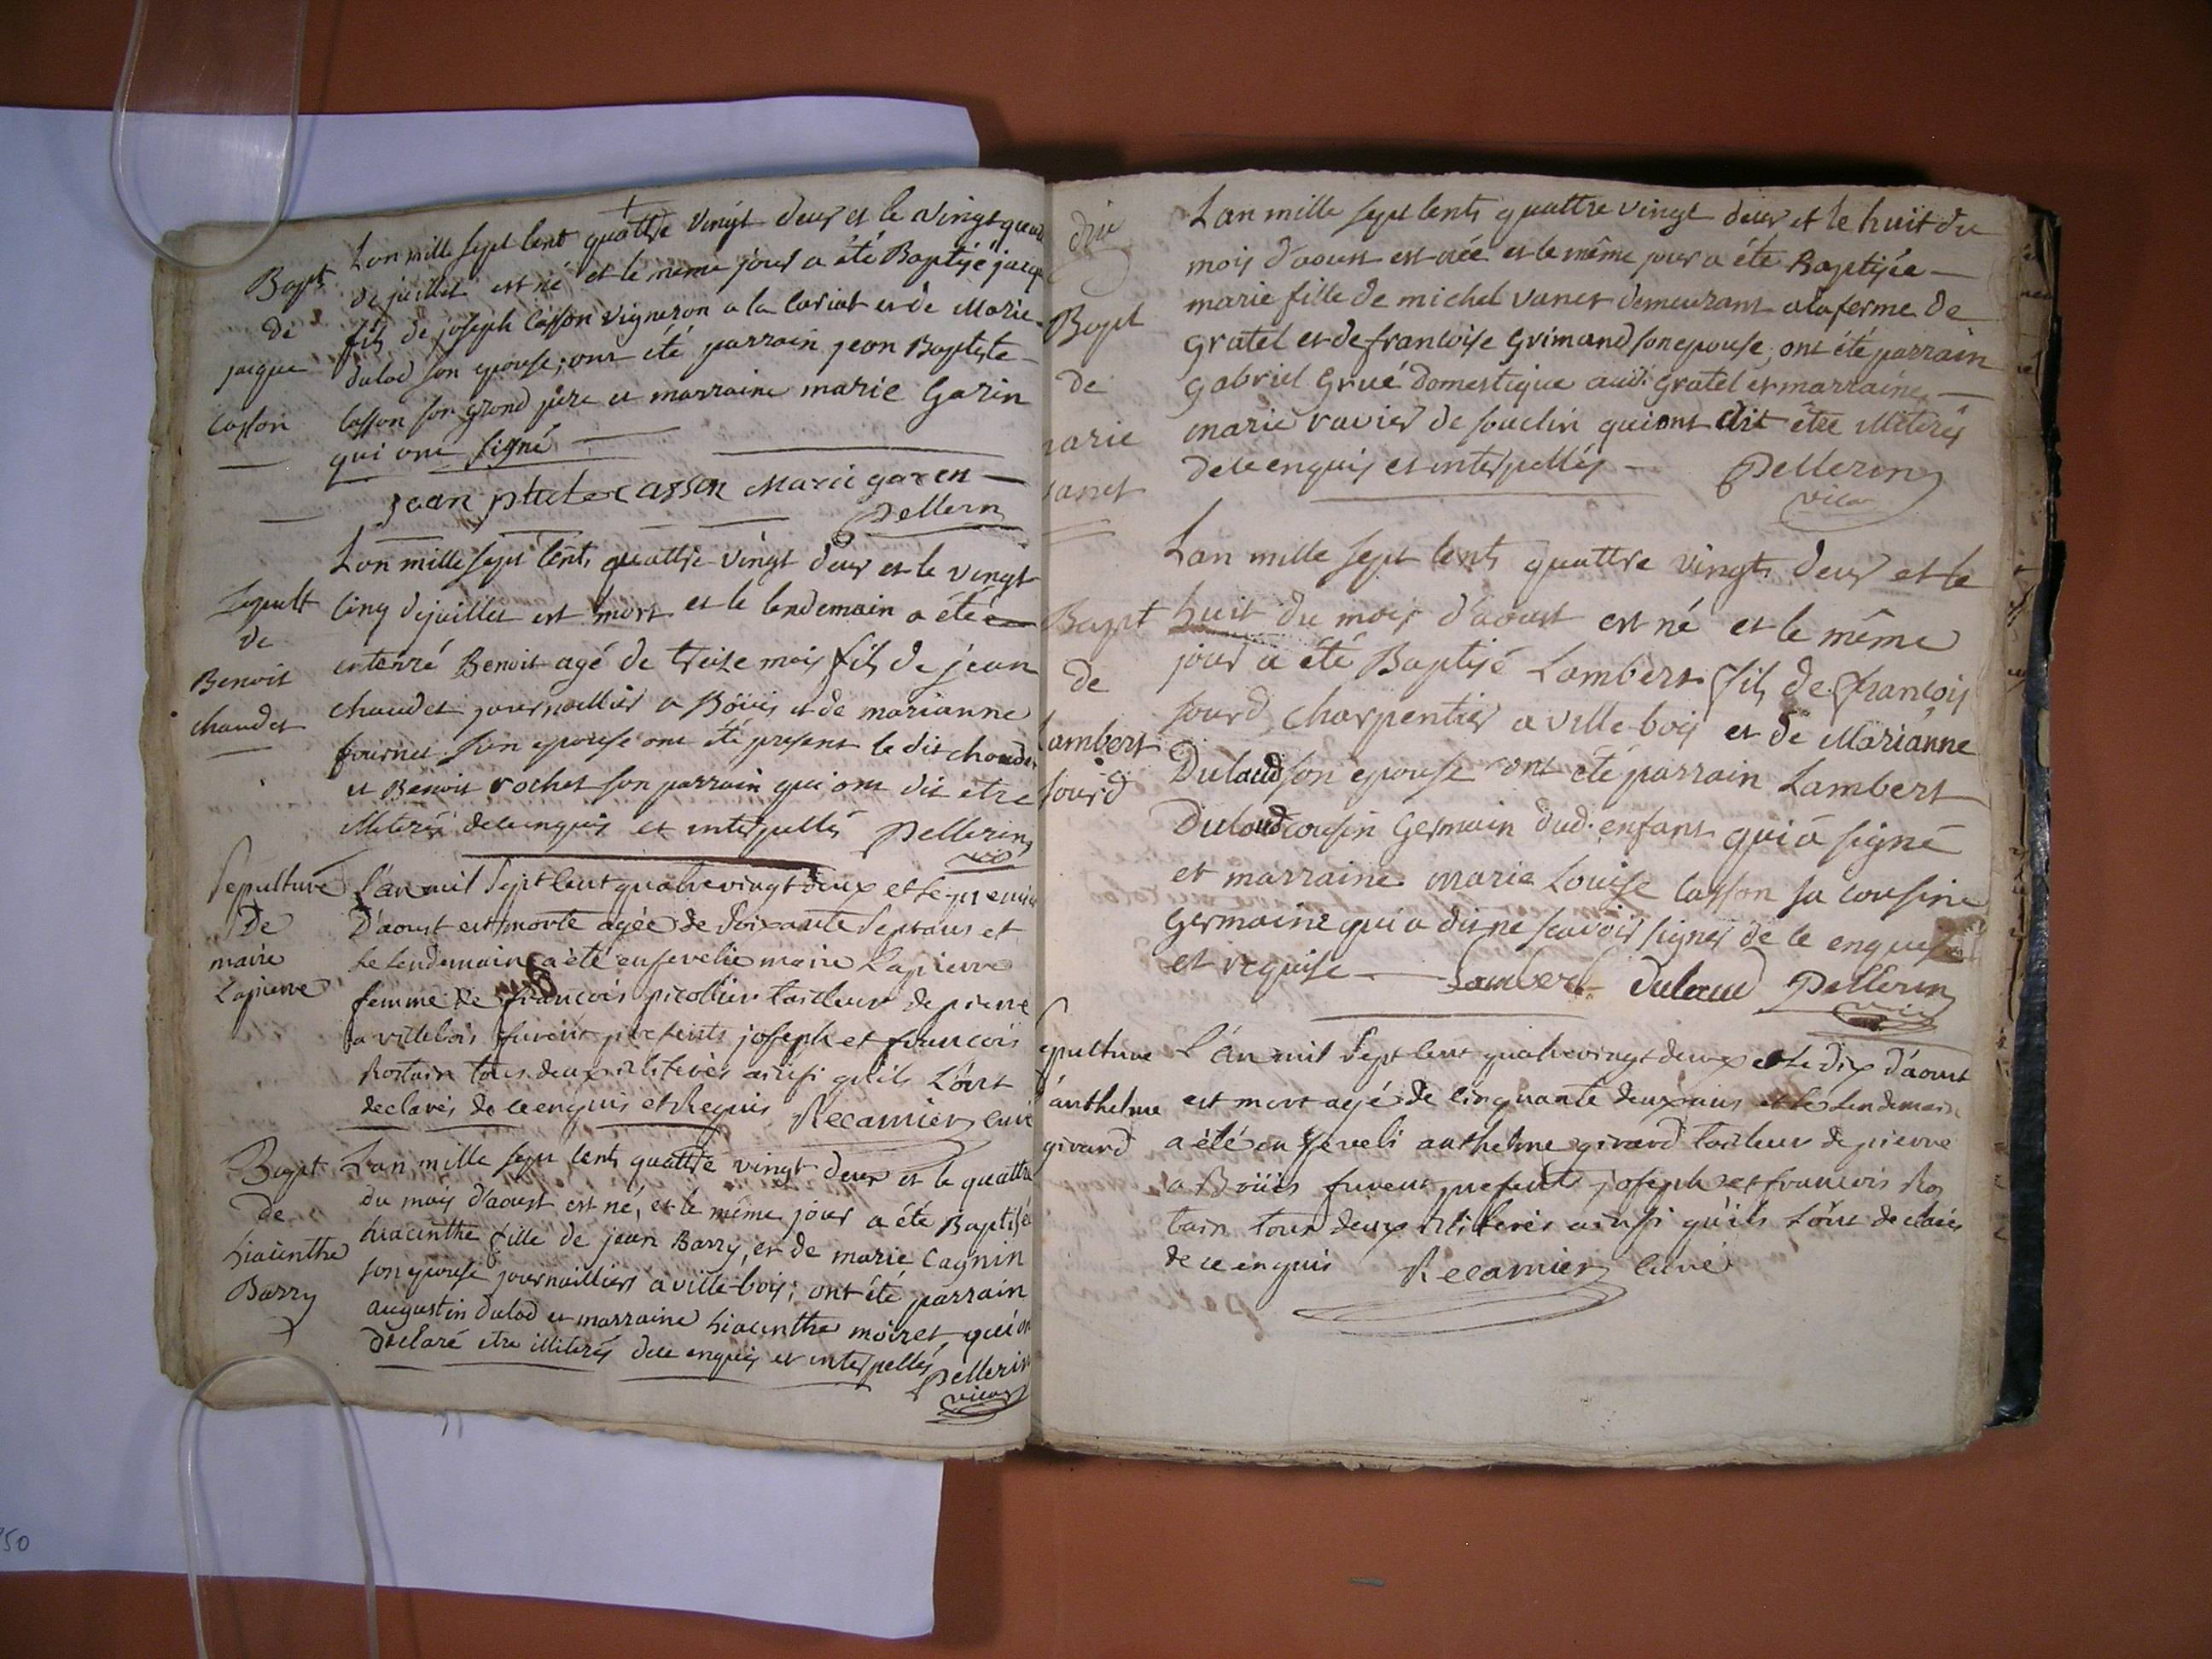 Lan mille sept cent quattre vingt deux et le vingt quatre
Bapt de juillet est né et le meme jour a été Baptisé jacque
de fils de joseph Casson vigneron a la Coriat et de Marie
jacque dulod son epouse; ont été parrain jean Baptiste
Casson Casson son grand pere et marraine marie Garin
qui ont signé
jean ptiste casson Marie garen
Pellerin
Lan mille sept cents quattre vingt deux et le vingt
Sepult cinq dejuillet est mort et le lendemain a été
de enterré Benoit agé de treize mois fils de jean
Benoit chaudet journallier a Böuis et de marianne
chaudet fournier son epouse ont été present le dit chaudet
et Benoit rochet son parrain qui ont dit etre
illiterés dece enquis et interpellés Pellerin
vic
Sepulture L'an mil Sept cent quatrevingt deux et le premier
De D'aoust est morte agée de Soixante Sept ans et
marie Le Lendemain a été ensevelie marie Lapierre
Lapierre femme de francois picollier tailleur de pierre
a villebois furent presents joseph et francois
Rostain tous deux illiterés ainsi qu'ils L'ont
declarés de ce enquis et Requis Recamier curé
Bapt Lan mille sept cents quattre vingt deux et le quattre
de du mois d'aoust est né, et le même jour a été Baptisée
hiacinthe hiacinthe fille de jean Barry, et de marie Cagnin
Barry son epouse journailliers a ville-bois; ont été parrain
augustin dulod et marraine hiacinthe moiret, qui ont
declaré etre illiterés dece enquis et interpellés
Pellerin
vicar
dix Lan mille sept cents quattre vingt deux et le huit du
mois d'aoust est née et le même jour a été Baptisée
Bapt marie fille de michel vanet demeurant a la ferme de
Gratel et de francoise Grimand son epouse; ont été parrain
de Gabriel Grué domestique audi Gratel et marraine
marie marie ravier de souclin qui ont dit être illiterés
vanet dece enquis et interpellés Pellerin
vicar
Lan mille sept cents quattre vingts deux et le
Bapt huit du mois d'aoust est né et le même
de jour a été Baptisé Lambert fils de francois
Lambert sourd charpentier a ville-bois et de Marianne
sourd Dulaud son epouse ont été parrain Lambert
Dulaud cousin Germain dud. enfant qui a signé
et marraine marie Louise Casson sa cousine
Germaine qui a dit ne scavoir signer de ce enquise
et requise Lambert Dulaud Pellerin
vic
epulture L'an mil Sept cent quatrevingt deux et le dix d'aoust
d'anthelme est mort agé de cinquante deux ans et le Lendemain
girard a été enseveli anthelme girard tailleur de pierre
a Böuis furent presents joseph et francois Ros
tain tous deux illiterés ainsi qu'ils L'ont declarés
de ce enquis Recamier curé
50